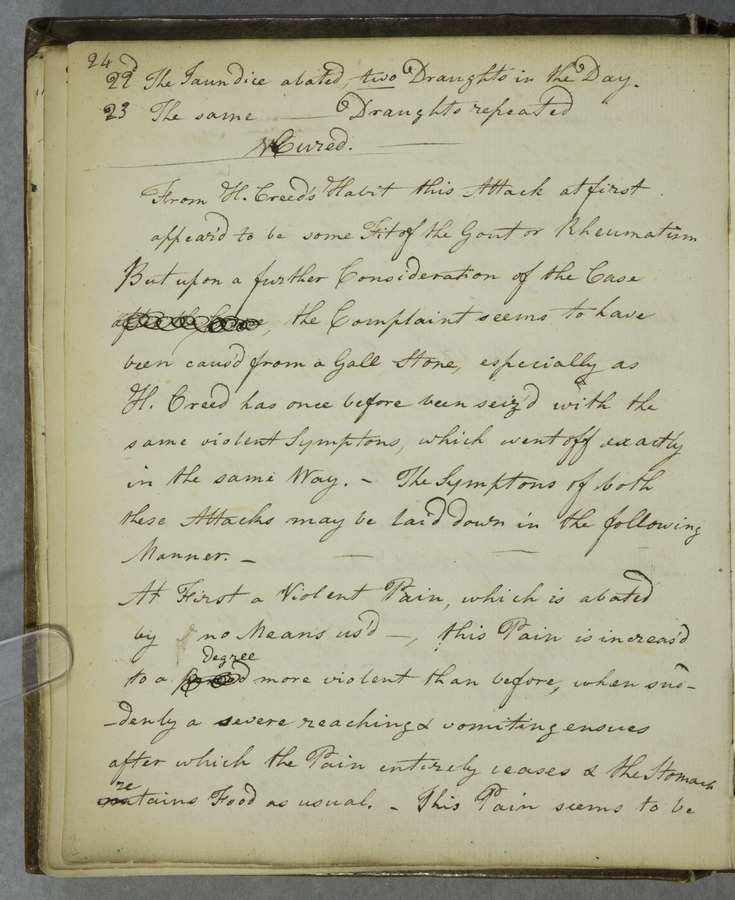 24
22d The Jaundice abated, two Draughts in the Day.
23 The same Draughts repeated
Cured.
From H. Creed's Habit this Attack at first
appear'd to be some Fit of the Gout or Rheumatism
But upon a further Consideration of the Case
, the Complaint seems to have
been caus'd from a Gall Stone, especially as
H. Creed has once before been seiz'd with the
same violent Symptons, which went off exactly
in the same Way. - The Symptons of both
these Attacks may be laid down in the following
Manner. -
At First a Violent Pain, which is abated
by no Means us'd -, this Pain is increas'd
Degree
to a more violent than before, when sud-
-denly a severe reaching & vomiting ensues
after which the Pain entirely ceases & the Stomach
retains Food as usual. - This Pain seems to be